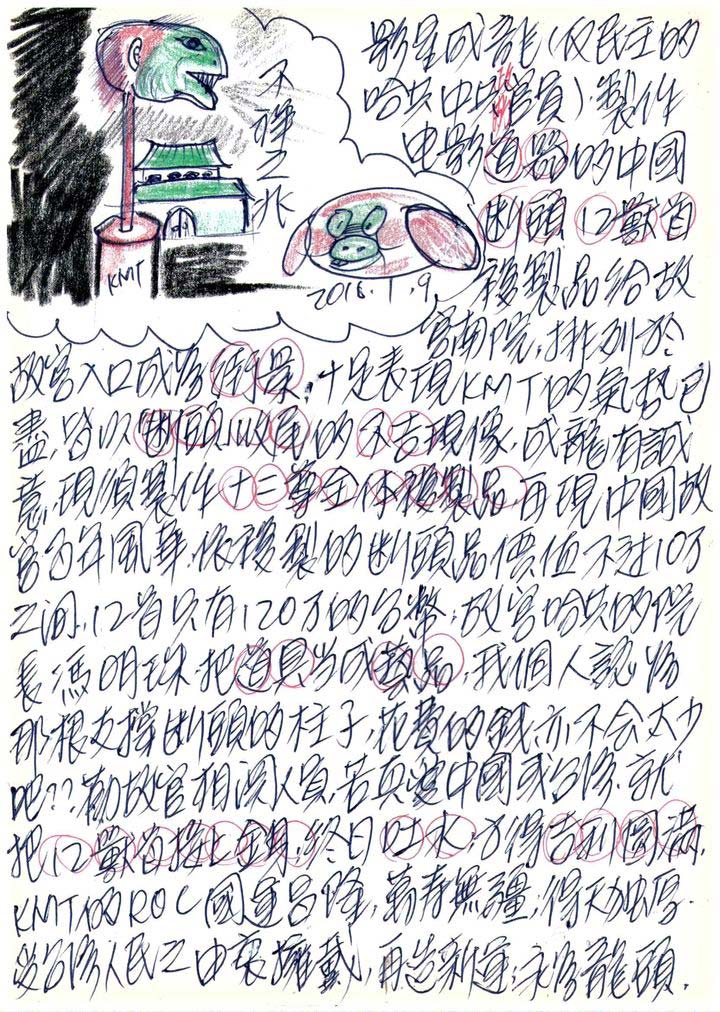 影星成龍(反民主的
哈共中共官員)製作
电影道器的中國
断頭12獸首
複製品給故
宮南院,排列於
不祥之兆
KMT
2016.1.9
故宮入口成為街景,十足表現KMT的氣勢已
盡,皆以断頭收尾的不吉現像,成龍有誠
意,現須製作十二尊全体複製品,再現中國故
宮百年風華,依複製的断頭品價值不过10万
之间,12首只有120万的台幣;故宮哈共的院
長馮明珠把道具当成藝品,我個人認為
那根支撐断頭的柱子,花費的錢,亦不会太少
吧??勸故宮相関人員,若真愛中國或台湾,就
把12獸首接上全身,終日吐水;才得吉利圓滿,
KMT的ROC國運昌隆,萬寿無疆;得天加厚.
受台湾人民之中衷擁戴,再造新運;永為龍頭.